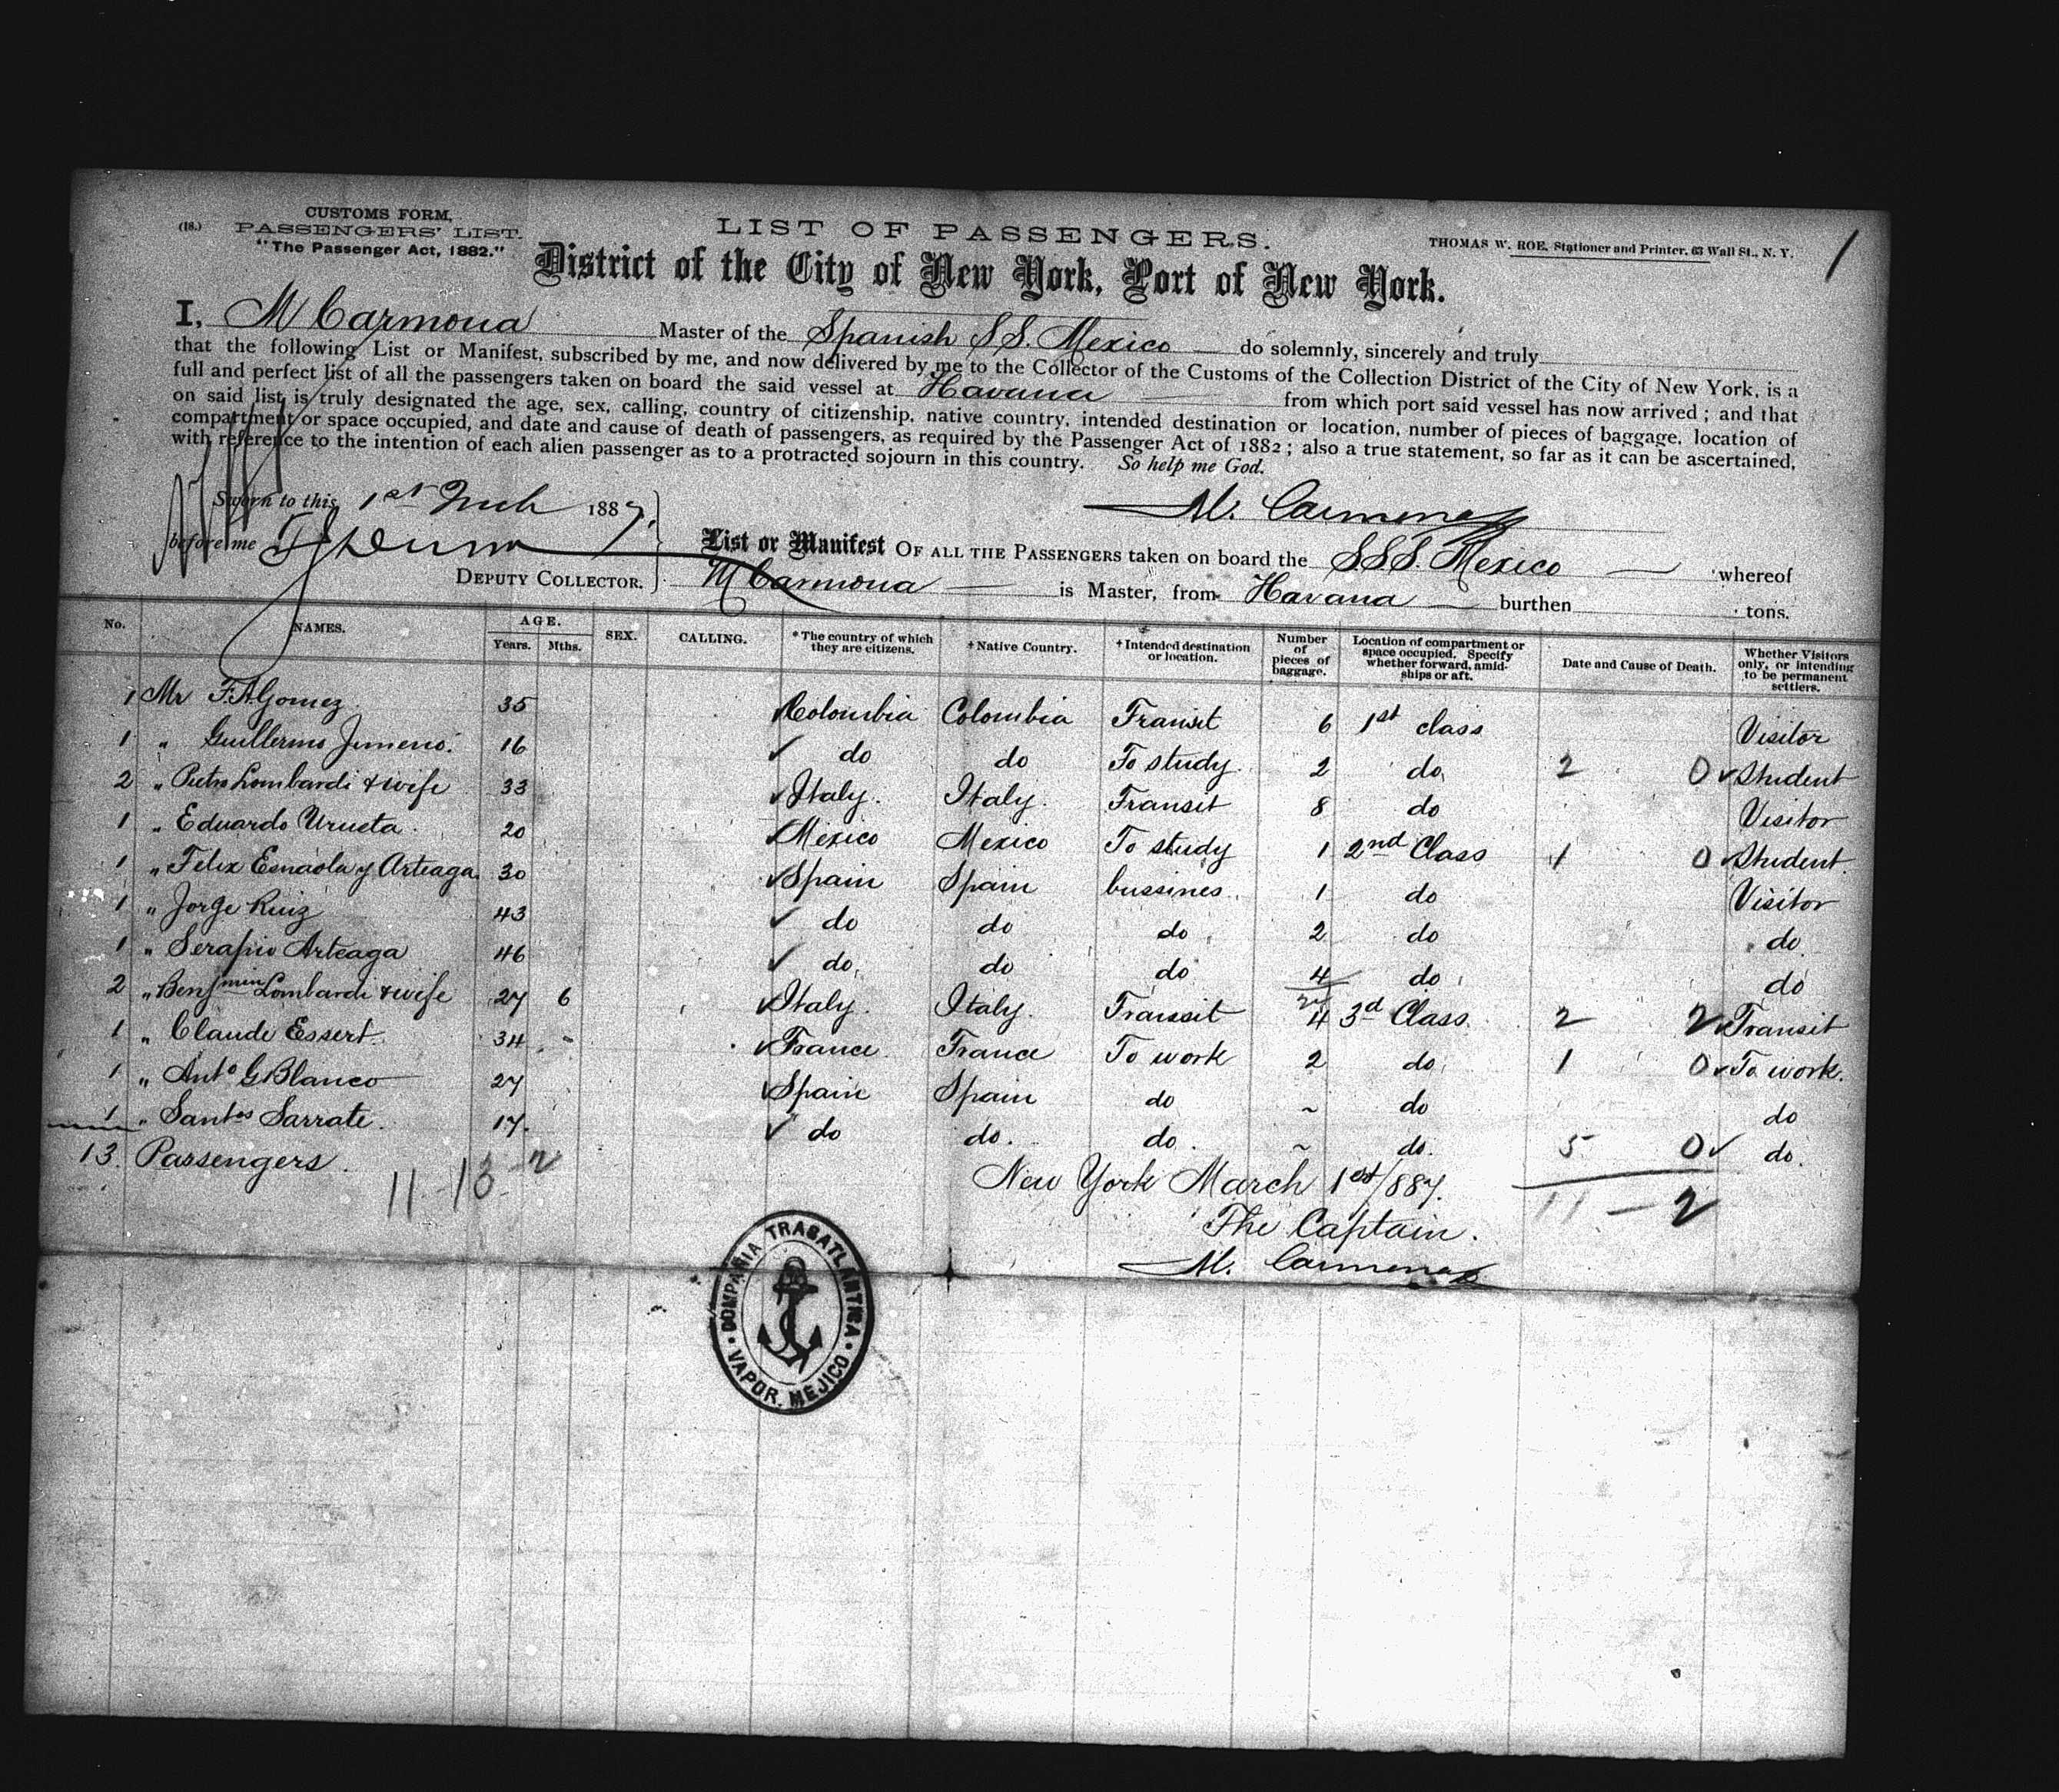 (18.)
CUSTOMS FORM,
PASSENGERS' LIST.
"The Passenger Act, 1882."
LIST OF PASSENGERS.
THOMAS W. ROE, Stationer and Printer, 63 Wall St., N. Y.
1
District of the City of New York, Port of New York.
I, M Carmona Master of the Spanish S S. Mexico do solemnly, sincerely and truly
that the following List or Manifest, subscribed by me, and now delivered by me to the Collector of the Customs of the Collection District of the City of New York, is a
full and perfect list of all the passengers taken on board the said vessel at Havana from which port said vessel has now arrived; and that
on said list is truly designated the age, sex, calling, country of citizenship, native country, intended destination or location, number of pieces of baggage, location of
compartment or space occupied, and date and cause of death of passengers, as required by the Passenger Act of 1882; also a true statement, so far as it can be ascertained,
with reference to the intention of each alien passenger as to a protracted sojourn in this country. So help me God.
Sworn to this 1st Mch 1887.
M. Carmona
before me
DEPUTY COLLECTOR.
List or Manifest OF ALL THE PASSENGERS taken on board the S S S. Mexico whereof
M Carmona is Master, from Havana burthen tons.
No. NAMES. AGE. Years. Mths. SEX. CALLING. *The country of which they are citizens. †Native Country. †Intended destination or location. Number of pieces of baggage. Location of compartment or space occupied. Specify whether forward, amidships or aft. Date and Cause of Death. Whether Visitors only, or intending to be permanent settlers.
1 Mr F. A. Gomez 35 Colombia Colombia Transit 6 1st class Visitor
1 " Guillermo Jimeno. 16 do do To study. 2 do 2 0 Student
2 " Pietro Lombardi & wife 33 Italy. Italy. Transit 8 do Visitor
1 " Eduardo Urueta. 20 Mexico Mexico To study 1 2nd Class 1 0 Student.
1 " Felix Esnaola y Arteaga. 30 Spain Spain bussines. 1 do Visitor
1 " Jorge Ruiz 43 do do do 2 do do.
1 " Serapio Arteaga 46 do do do 4 do do
2 " Benjmin Lombardi & wife 27 6 Italy. Italy. Transit 4 3d Class. 2 2 Transit
1 " Claude Essert. 34 France France To work 2 do 1 0 To work.
1 " Anto G Blanco 27 Spain Spain do ~ do do
1 " Santos Sarrate. 17. do do. do. ~ do. 5 0 do.
13. Passengers.
11-13-2
New York March 1st/887.
11 - 2
The Captain.
M. Carmona
COMPAÑIA TRASATLANTICA
VAPOR. MEJICO